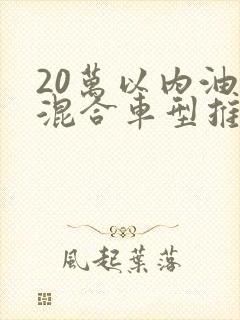 20萬以內油
混合車型推
風起葉落